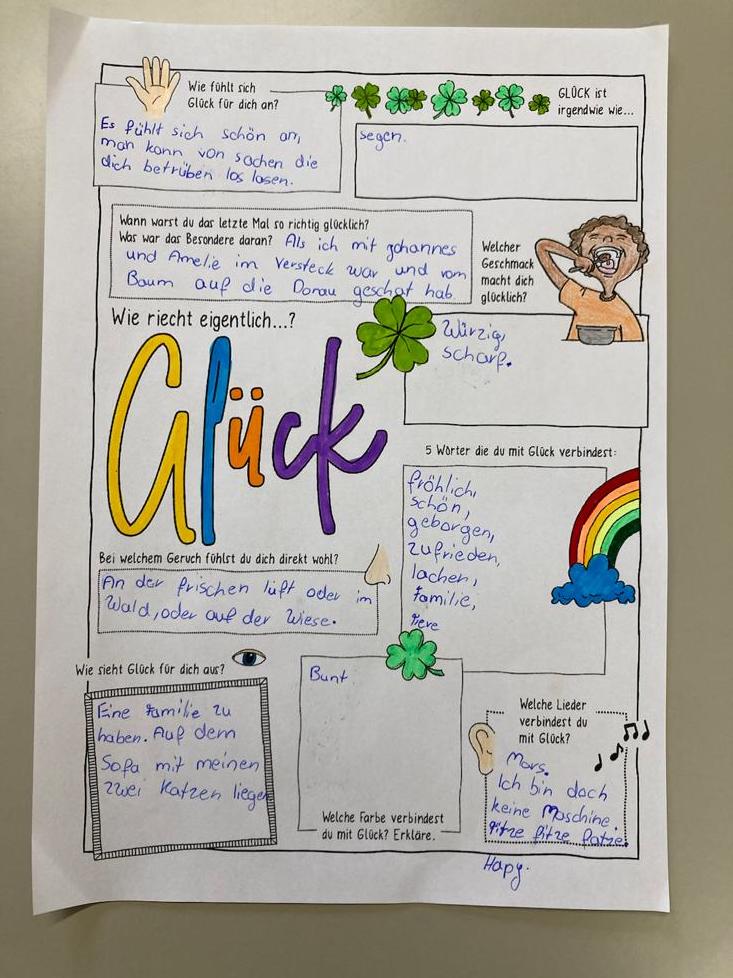 Wie fühlt sich
Glück für dich an?
Es fühlt sich schön an,
man kann von sachen die
dich betrüben los lasen.
GLÜCK ist
irgendwie wie...
segen.
Wann warst du das letzte Mal so richtig glücklich?
Was war das Besondere daran? Als ich mit Johannes
und Amelie im Versteck war und vom
Baum auf die Donau geschat hab
Welcher
Geschmack
macht dich
glücklich?
Würzig,
scharf.
Wie riecht eigentlich...?
Glück
5 Wörter die du mit Glück verbindest:
fröhlich,
schön,
geborgen,
zufrieden,
lachen,
Familie,
Tiere
Bei welchem Geruch fühlst du dich direkt wohl?
An der frischen luft oder im
Wald, oder auf der Wiese.
Wie sieht Glück für dich aus?
Eine Familie zu
haben. Auf dem
Sofa mit meinen
zwei Katzen liegen
Bunt
Welche Farbe verbindest
du mit Glück? Erkläre.
Welche Lieder
verbindest du
mit Glück?
Mars.
Ich bin doch
keine Maschine.
Pitze Pitze Patze.
Hapy.